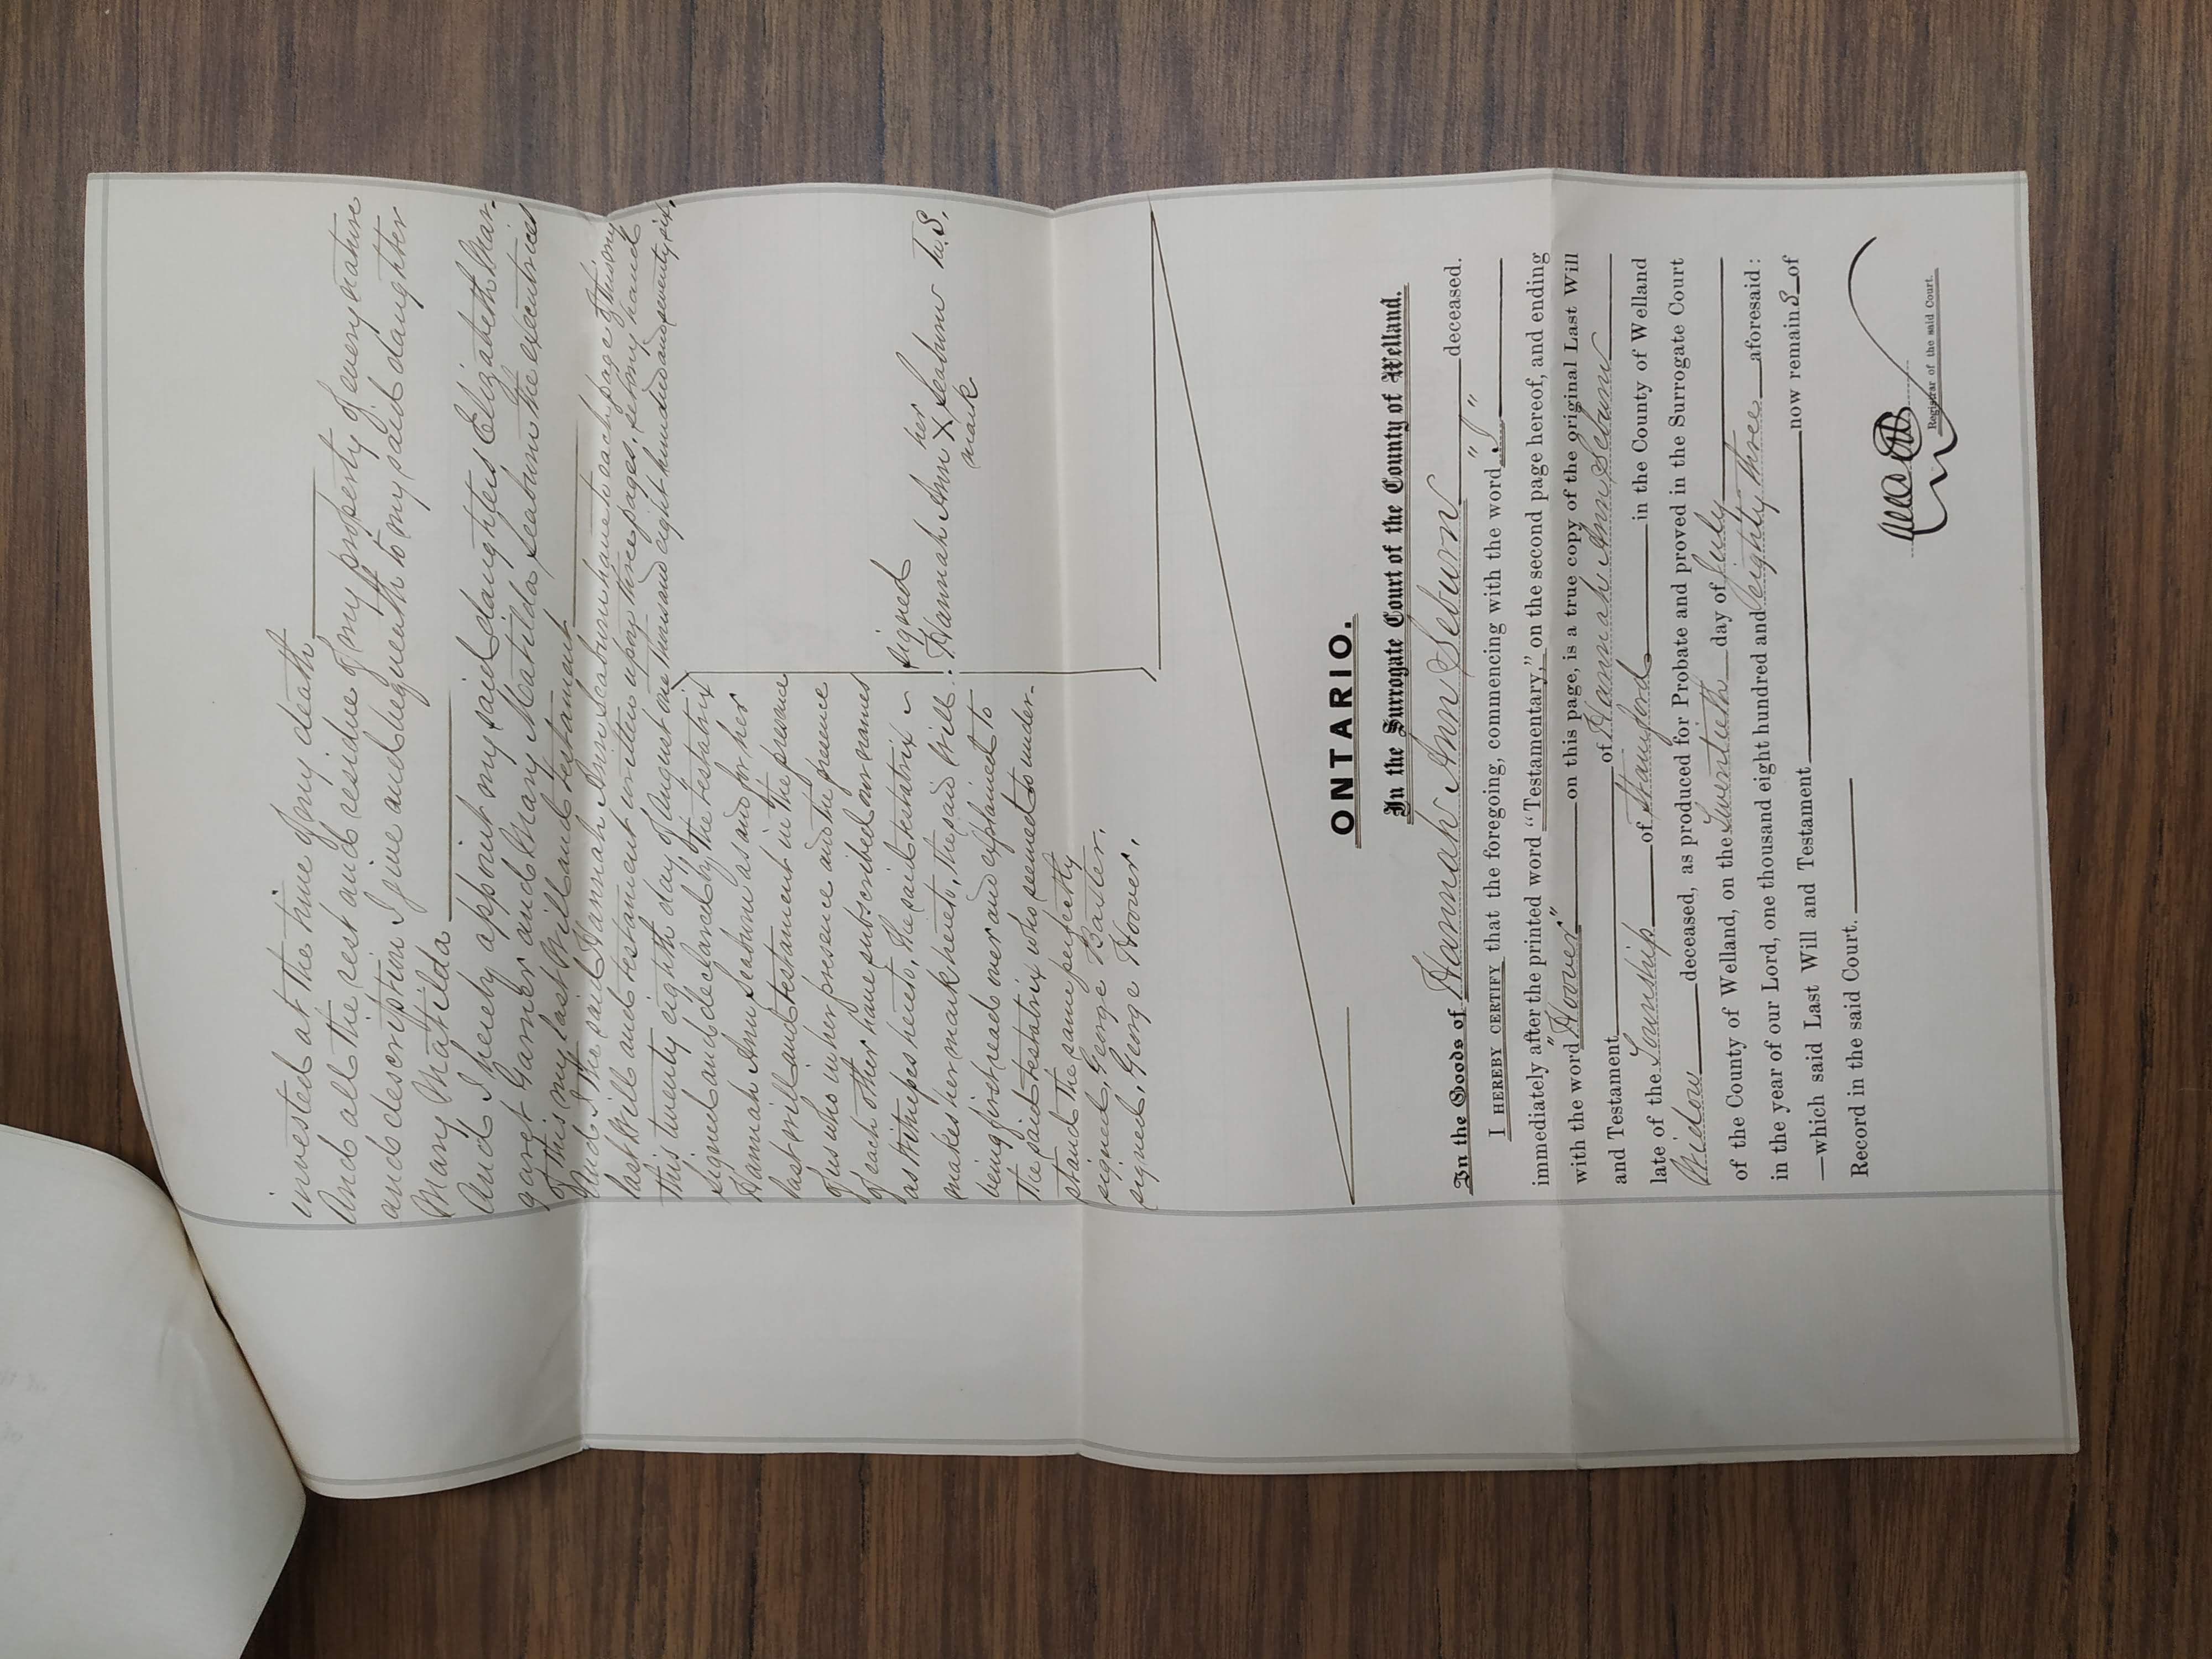 invested at the time of my death
And all the rest and residue of my property of every nature
and description I give and bequeath to my said daughter
Mary Matilda
And I hereby appoint my said daughters Elizabeth Mar-
garet Garner and Mary Matilda Seaburn the executrices
of this my last Will and testament
And I the said Hannah Ann Seaburn have to each page of this my
last Will and testament written upon three pages, set my hand
this twenty eighth day of August one thousand eight hundred and seventy six.
Signed and declared by the testatrix
Hannah Ann Seaburn as and for her
last will and testament in the presence
of us who in her presence and the presence
of each other have subscribed our names
as Witnesses hereto, the said testatrix
makes her mark hereto, the said Will
being first read over and explained to
the said testatrix who seemed to under-
stand the same perfectly
signed, George Baxter.
signed, George Hoover.
signed
her
Hannah Ann X Seaburn L.S.
mark
ONTARIO.
In the Surrogate Court of the County of Welland.
In the Goods of Hannah Ann Seburn deceased.
I HEREBY CERTIFY that the foregoing, commencing with the word "I"
immediately after the printed word "Testamentary," on the second page hereof, and ending
with the word "Hoover" on this page, is a true copy of the original Last Will
and Testament of Hannah Ann Seburn
late of the Township of Stamford in the County of Welland
Widow deceased, as produced for Probate and proved in the Surrogate Court
of the County of Welland, on the Twentieth day of July
in the year of our Lord, one thousand eight hundred and eighty three aforesaid:
—which said Last Will and Testament now remain s of
Record in the said Court.
Registrar of the said Court.